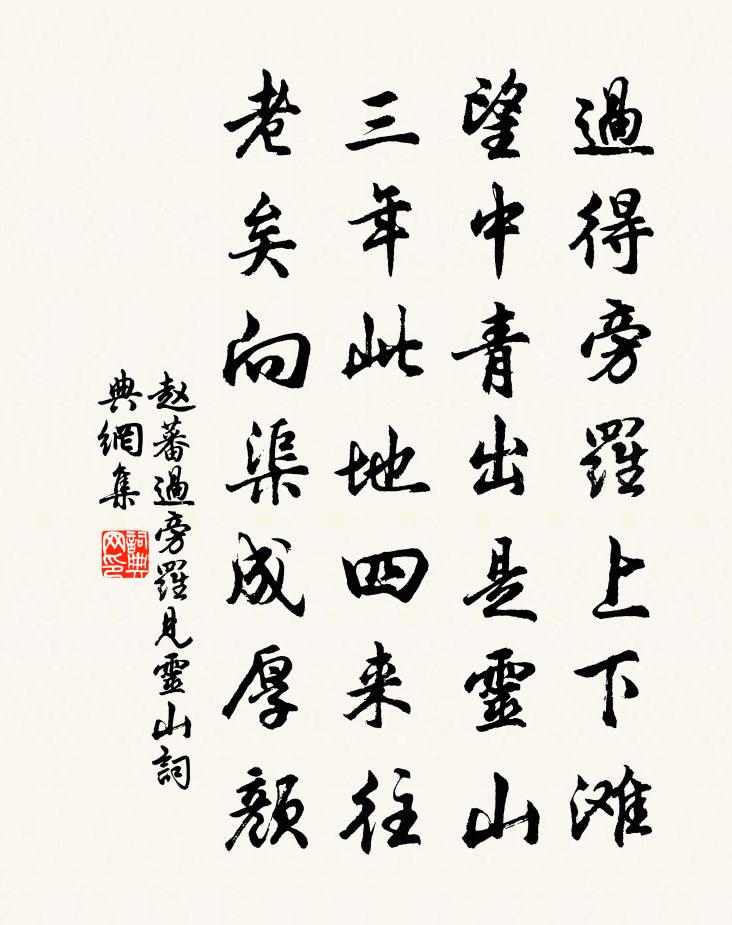 過得旁羅上下滩
望中青出是靈山
三年此地四来往
老矣向渠成厚顔
赵蕃過旁羅見靈山詞
典網集
詞典
网印